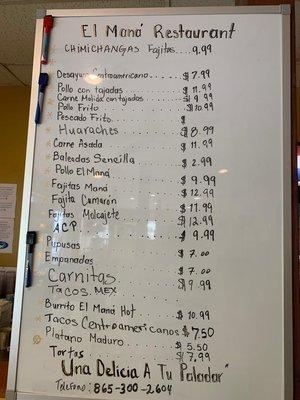 El Maná Restaurant
CHIMICHANGAS Fajitas....9.99
Desayuno Centroamericano....$7.99
Pollo con tajadas....$11.99
Carne Molida con tajadas....$9.99
Pollo Frito....$10.99
Pescado Frito....$
Huaraches....$8.99
Carne Asada....$11.99
Baleadas Sencilla....$2.99
Pollo El Maná....$9.99
Fajitas Maná....$12.99
Fajita Camarón....$11.99
Fajitas Molcajete....$12.99
A.C.P.....$9.99
Pupusas
Empanadas....$7.00
Carnitas....$7.00
TACOS. MEX....$9.99
Burrito El Maná Hot....$10.99
Tacos Centroamericanos $7.50
Platano Maduro....$5.50
Tortas....$7.99
"Una Delicia A Tu Paladar"
Telefono: 865-300-2604